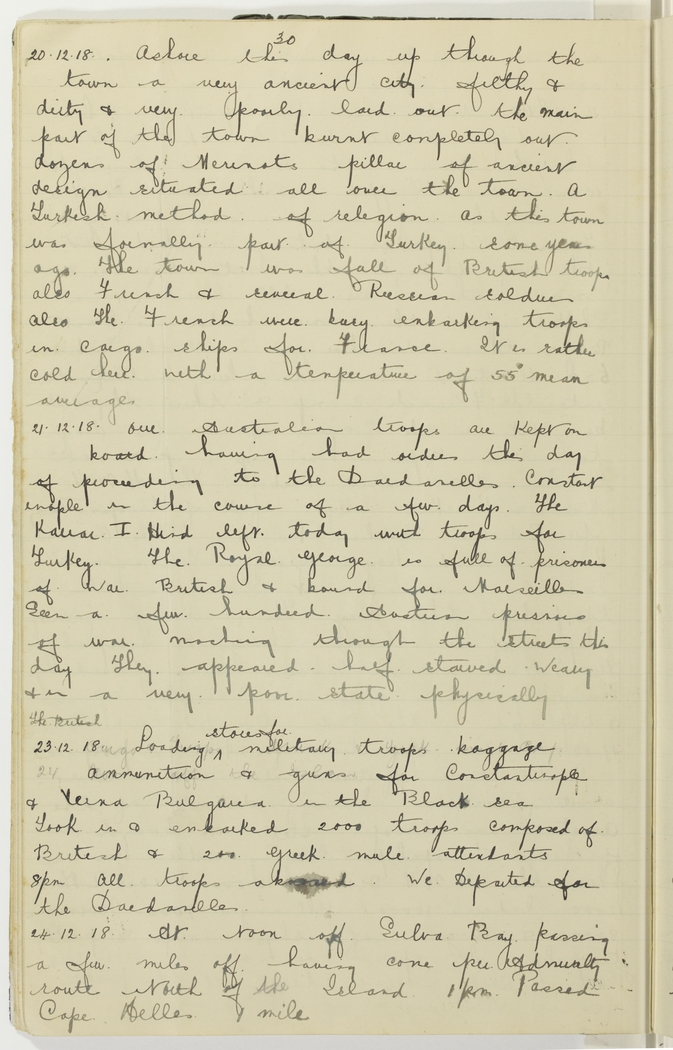 30
20.12.18. Ashore this day up through the
town a very ancient city. filthy &
dirty & very poorly laid out. the main
part of the town burnt completely out.
dozens of Merinots pillar of ancient
design situated all over the town. A
Turkish method of relegion. as this town
was formally part of Turkey. some years
ago. The town was full of British troops
also French & several Russian soldiers
also the French were busy enbarking troops
in cargo ships for France. It is rather
cold here. with a temperature of 55° mean
average.
21.12.18. our Australian troops are kept on
board. having had orders this day
of proceeding to the Dardanelles. Constant
inople in the course of a few days. The
Kaiser I Hind left today with troops for
Turkey. The Royal George is full of prisoners
of War British & bound for Marseilles
Seen a few hundred Austrian prisoners
of war marching through the streets this
day They appeared half starved weary
& in a very poor state physically
The British
23.12.18 Loading stores for military troops baggage
ammunition & guns for Constantinople
& Verna Bulgaria in the Black sea
Took in & enbarked 2000 troops composed of
British & 200 Greek mule attendants
8pm All troops aboard. We Departed for
the Dardanelles.
24.12.18. At Noon off Sulva Bay passing
a few miles off having come per Admiralty
route North of the Island 1pm Passed
Cape Helles 1 mile